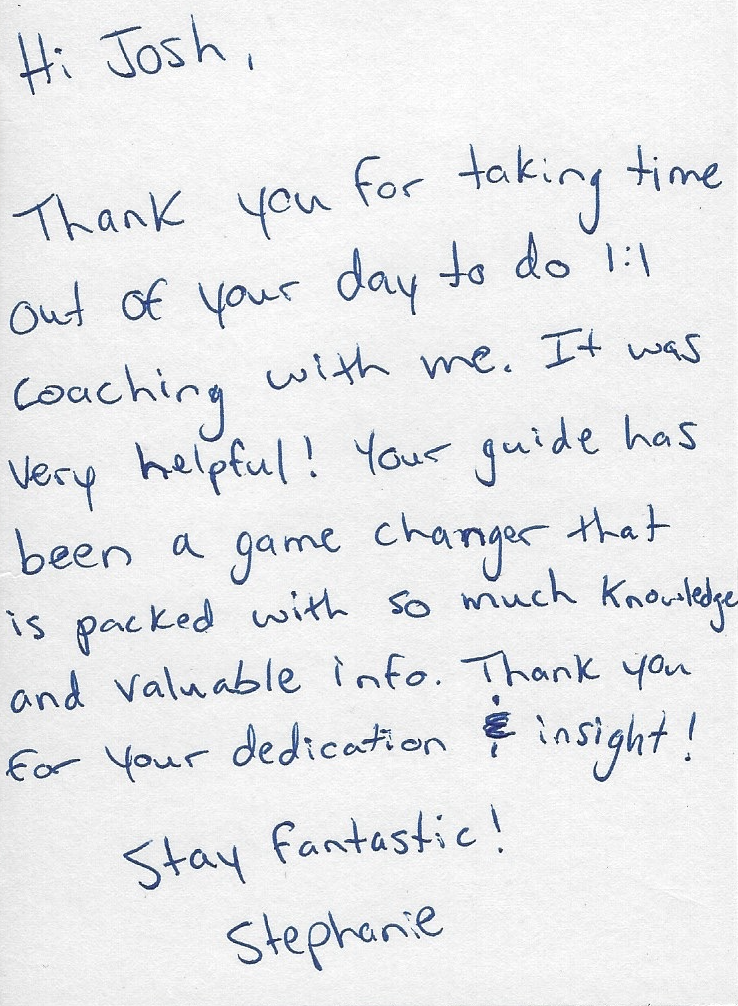 Hi Josh,
Thank you for taking time
out of your day to do 1:1
coaching with me. It was
very helpful! Your guide has
been a game changer that
is packed with so much knowledge
and valuable info. Thank you
for your dedication & insight!
Stay fantastic!
Stephanie